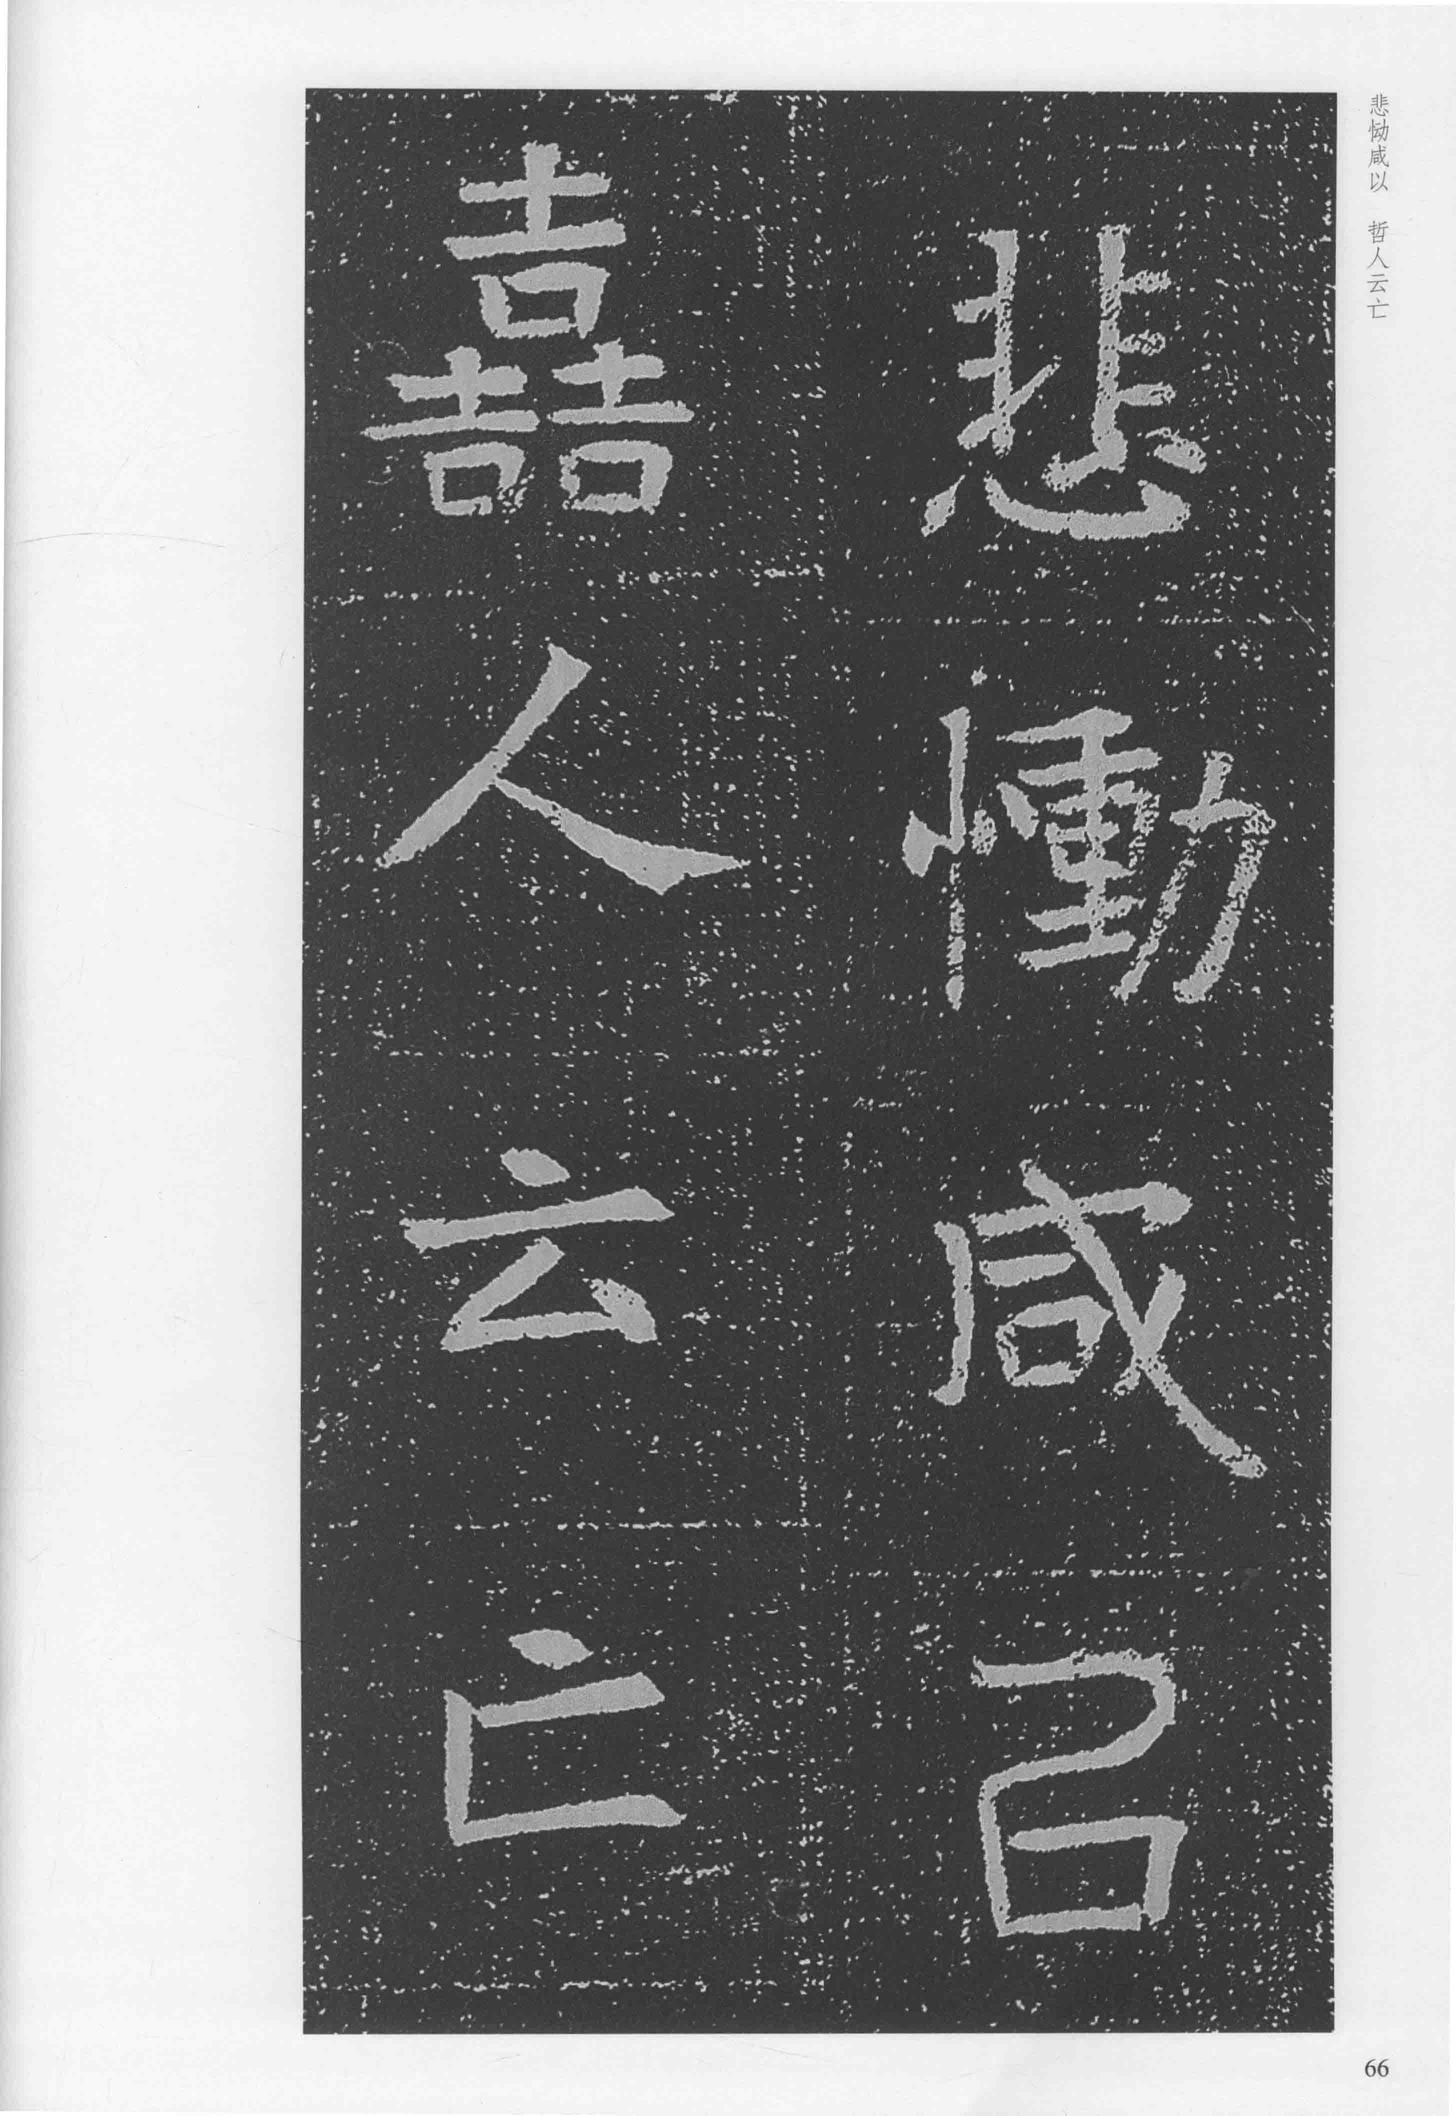 悲恸咸以　哲人云亡
悲慟咸㠯
嚞人云亡
66